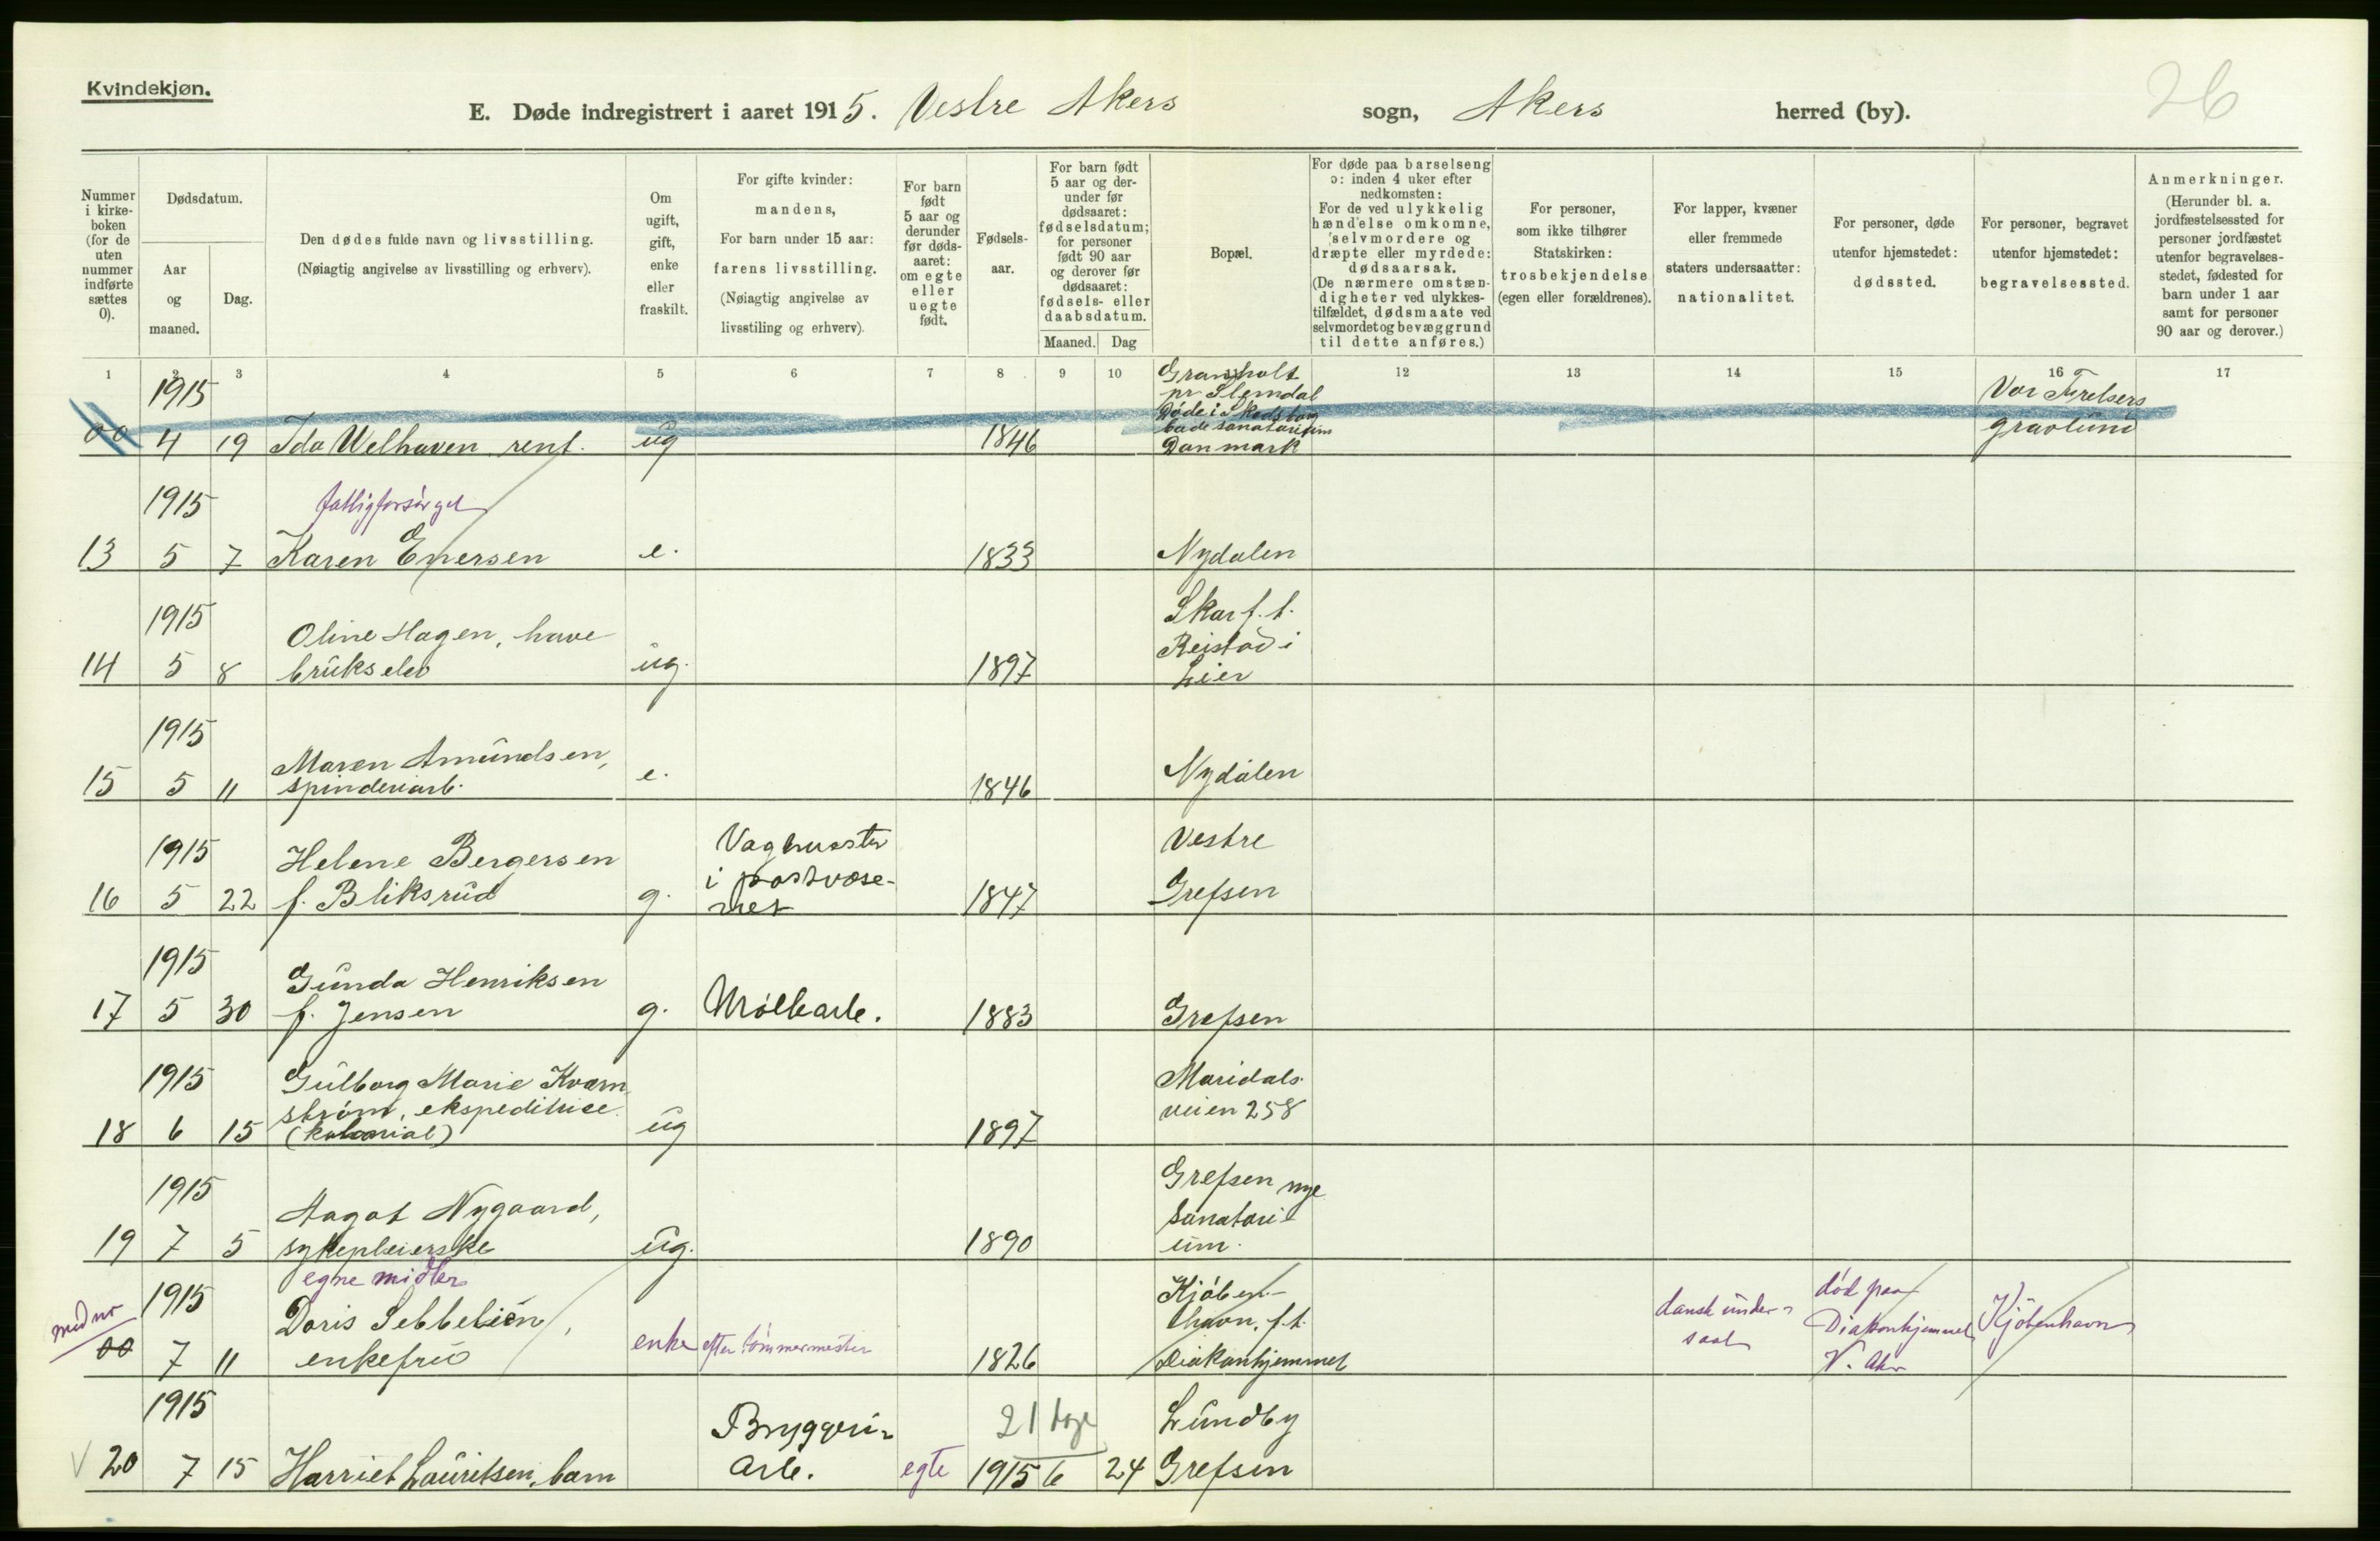 Kvindekjøn.
26
E. Døde indregistrert i aaret 1915. Vestre Akers sogn, Akers herred (by).
Nummer i kirke- boken (for de uten nummer indførte sættes 0).
Dødsdatum.
Aar og maaned.
Dag.
Den dødes fulde navn og livsstilling.
(Nøiagtig angivelse av livsstilling og erhverv).
Om ugift, gift, enke eller fraskilt.
For gifte kvinder: mandens,
For barn under 15 aar: farens livsstilling.
(Nøiagtig angivelse av livsstiling og erhverv).
For barn født 5 aar og derunder før døds- aaret: om egte eller uegte født.
Fødsels- aar.
For barn født 5 aar og der- under før dødsaaret: fødselsdatum; for personer født 90 aar og derover før dødsaaret: fødsels- eller daabsdatum.
Maaned. Dag
Bopæl.
For døde paa barselseng ɔ: inden 4 uker efter nedkomsten:
For de ved ulykkelig hændelse omkomne, selvmordere og dræpte eller myrdede: dødsaarsak.
(De nærmere omstæn- digheter ved ulykkes- tilfældet, dødsmaate ved selvmordet og bevæggrund til dette anføres.)
For personer, som ikke tilhører Statskirken: trosbekjendelse (egen eller forældrenes).
For lapper, kvæner eller fremmede staters undersaatter: nationalitet.
For personer, døde utenfor hjemstedet: dødssted.
For personer, begravet utenfor hjemstedet: begravelsessted.
Anmerkninger.
(Herunder bl. a. jordfæstelsessted for personer jordfæstet utenfor begravelses- stedet, fødested for barn under 1 aar samt for personer 90 aar og derover.)
1 2 3 4 5 6 7 8 9 10 12 13 14 15 16 17
1915 Granholt
pr. Slemdal Vor Frelsers
Døde i Skodsborg
badesanatorium gravlund
00 4 19 Ida Welhaven, rent. ug 1846 Danmark
1915 fattigforsørget
13 5 7 Karen Enersen e. 1833 Nydalen
1915 Skar f. t.
Oline Hagen, have Reistad i
14 5 8 brukselev ug. 1897 Lier
1915
Maren Amundsen,
15 5 11 spinderiarb. e. 1846 Nydalen
1915 Helene Bergersen Vagmester Vestre
16 5 22 f. Bliksrud g. i postvæse- 1847 Grefsen
net
1915 Gunda Henriksen
17 5 30 f. Jensen g. Møllearb. 1883 Grefsen
1915 Gulborg Marie Kværn Maridals-
strøm, ekspeditrice veien 258
18 6 15 (kolonial) ug 1897
1915 Grefsen nye
Aagot Nygaard, Sanatori-
19 7 5 sykepleierske ug. 1890 um.
egne midler
1915 Kjøben- død paa
Doris Sebbelien, havn, f.t. dansk under- Diakonhjemmet Kjöbenhavn
med nr
00 7 11 enkefru enke efter tømmermester 1826 Diakonhjemmet saat V. Aker
1915 Bryggeri- 21 dage Lundby
V 20 7 15 Harriet Lauritsen, barn arb. egte 1915 6 24 Grefsen